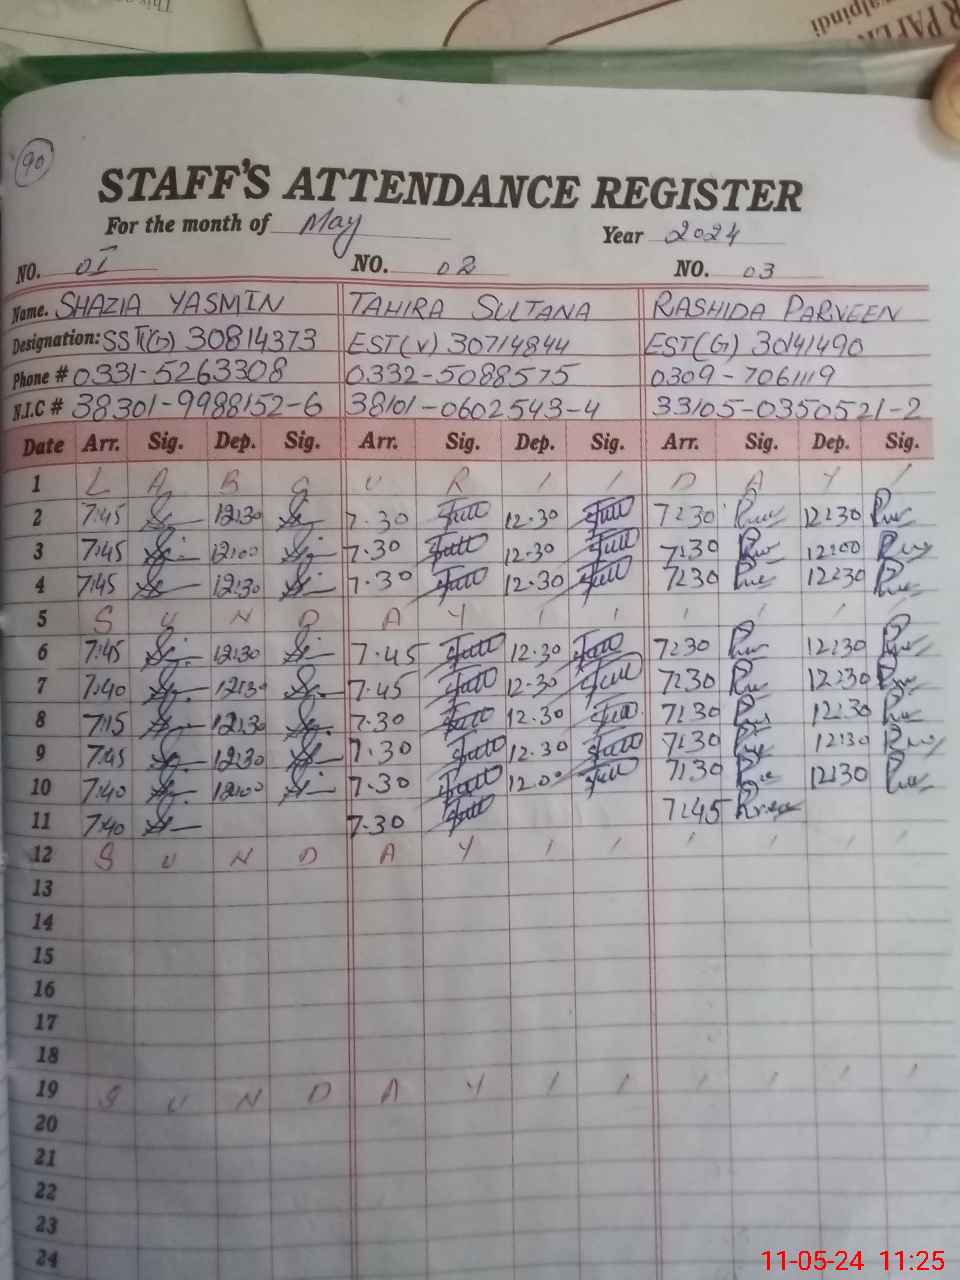 This
R PAPER
alpindi
90
STAFF'S ATTENDANCE REGISTER
For the month of May Year 2024
NO. 01 NO. 02 NO. 03
Name. SHAZIA YASMIN TAHIRA SULTANA RASHIDA PARVEEN
Designation: SST(G) 30814373 EST(V) 30714844 EST(G) 30141490
Phone # 0331-5263308 0332-5088575 0309-7061119
N.I.C # 38301-9988152-6 38101-0602543-4 33105-0350521-2
Date Arr. Sig. Dep. Sig. Arr. Sig. Dep. Sig. Arr. Sig. Dep. Sig.
1 L A B O U R / / D A Y /
2 7:45 12:30 7.30 12.30 7:30 12:30
3 7:45 12:00 7.30 12.30 7:30 12:00
4 7:45 12:30 7.30 12.30 7:30 12:30
5 S U N D A Y / / / / / /
6 7:45 12:30 7.45 12.30 7:30 12:30
7 7:40 12:30 7.45 12.30 7:30 12:30
8 7:15 12:30 7.30 12.30 7:30 12:30
9 7:45 12:30 7.30 12.30 7:30 12:30
10 7:40 12:00 7.30 12.00 7:30 12:30
11 7:40 7.30 7:45
12 S U N D A Y / / / / / /
13
14
15
16
17
18
19 S U N D A Y / / / / / /
20
21
22
23
24
11-05-24 11:25